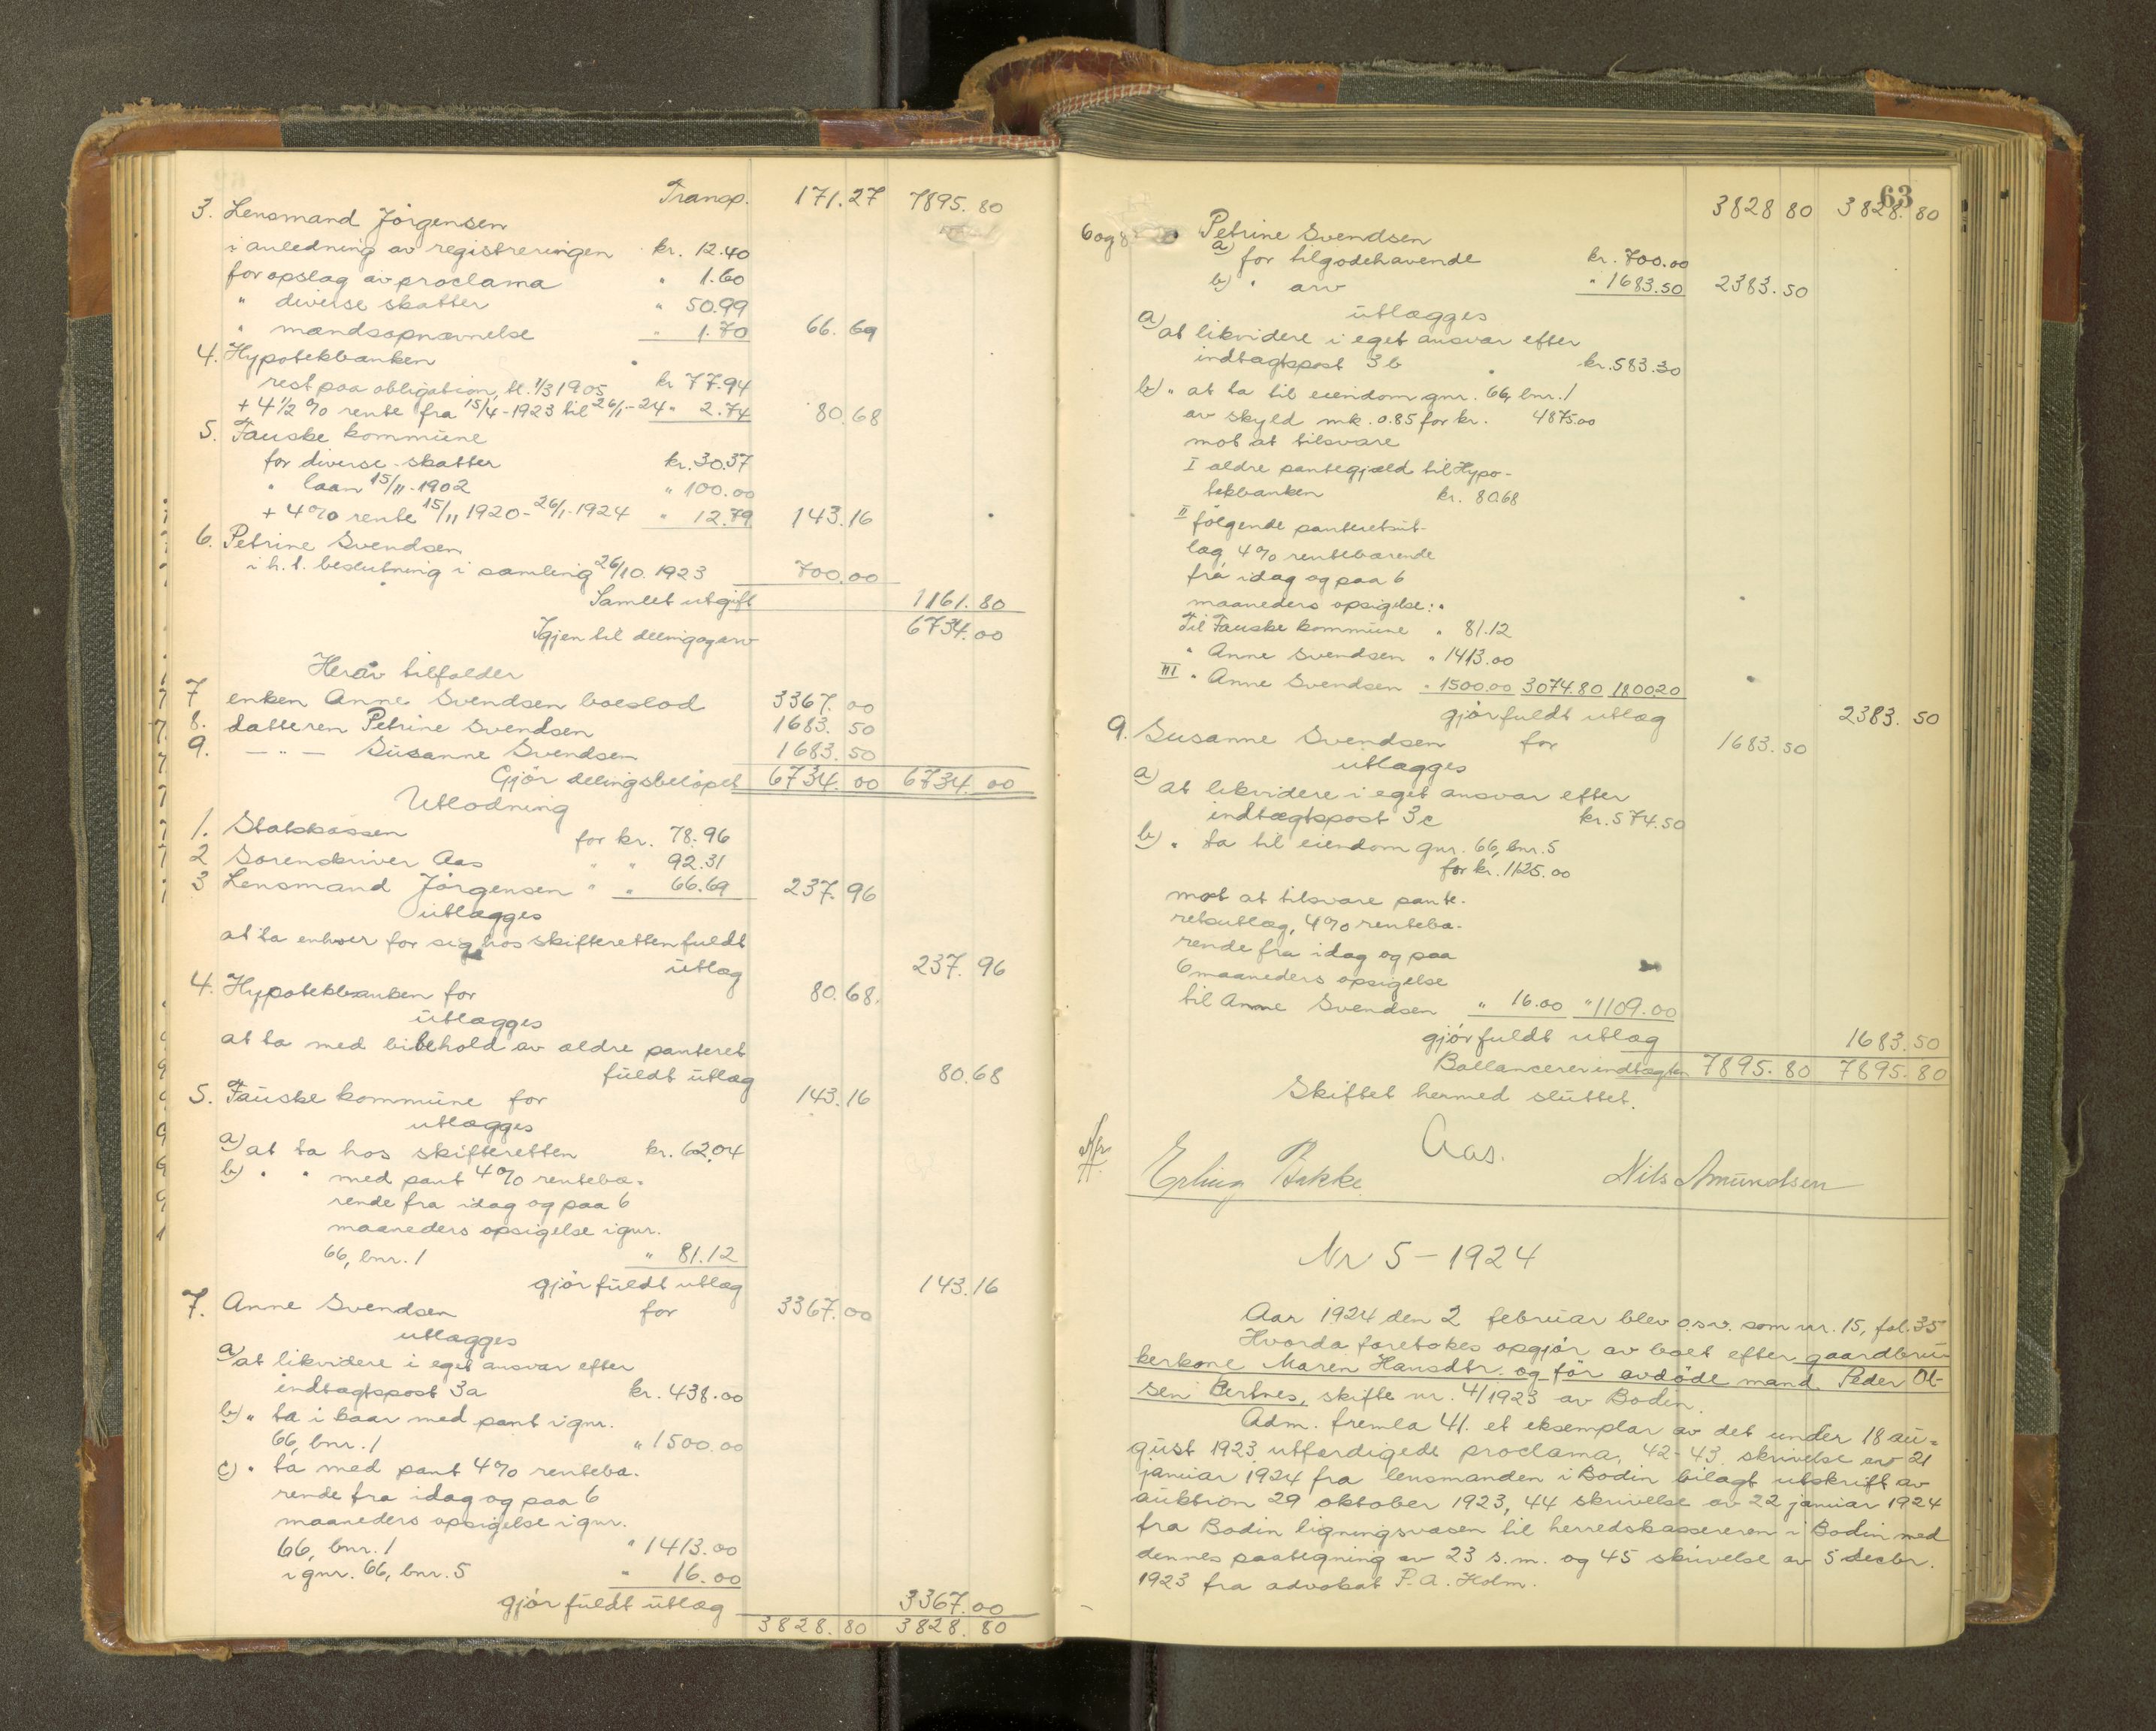 Transp. 171.27 7895.80
3. Lensmand Jörgensen
i anledning av registreringen kr. 12.40
for opslag av proclama " 1.60
" diverse skatter " 50.99
" mandsopnævnelse " 1.70 66.69
4. Hypotekbanken
rest paa obligation, tl. 1/3 1905 kr 77.94
+ 4 1/2 % rente fra 15/4-1923 til 26/1-24 " 2.74 80.68
5. Fauske kommune
for diverse skatter kr. 30.37
" laan 15/11-1902 " 100.00
+ 4% rente 15/11 1920-26/1-1924 " 12.79 143.16
6. Petrine Svendsen
i h. t. beslutning i samling 26/10. 1923 700.00
Samlet utgift 1161.80
Igjen til deling og arv 6734.00
Herav tilfalder
7 enken Anne Svendsen boeslod 3367.00
8. datteren Petrine Svendsen 1683.50
9. — " — Susanne Svendsen 1683.50
Gjör delingsbelöpet 6734.00 6734.00
Utlodning
1. Statskassen for kr. 78.96
2 Sorenskriver Aas " " 92.31
3 Lensmand Jörgensen " " 66.69 237.96
utlægges
at ta enhver for sig hos skifteretten fuldt
utlæg 237.96
4. Hypotekbanken for 80.68.
utlægges
at ta med bibehold av ældre panteret
fuldt utlæg 80.68
5. Fauske kommune for 143.16
utlægges
a) at ta hos skifteretten kr. 62.04
b) " " med pant 4% renteba-
rende fra idag og paa 6
maaneders opsigelse i gnr.
66, bnr. 1 " 81.12
gjör fuldt utlæg 143.16
7. Anne Svendsen for 3367.00
utlægges
a) at likvidere i eget ansvar efter
indtægtspost 3a kr. 438.00
b) " ta i kaar med pant i gnr.
66, bnr. 1 " 1500.00
c) " ta med pant 4% renteba-
rende fra idag og paa 6
maaneders opsigelse i gnr.
66, bnr. 1 " 1413.00
i gnr. 66, bnr. 5 " 16.00
gjör fuldt utlæg 3367.00
3828.80 3828.80
63
3828 80 3828.80
6 og 8 Petrine Svendsen
a) for tilgodehavende kr. 700.00
b) " arv " 1683.50 2383.50
utlægges
a) at likvidere i eget ansvar efter
indtægtspost 3b kr. 583.30
b) " at ta til eiendom gnr. 66, bnr. 1
av skyld mk. 0.85 for kr. 4875.00
mot at tilsvare
I ældre pantegjæld til Hypo-
tekbanken kr. 80.68
II følgende panteretsut-
læg 4% rentebærende
fra idag og paa 6
maaneders opsigelse:
Til Fauske kommune " 81.12
" Anne Svendsen " 1413.00
III " Anne Svendsen " 1500.00 3074.80 1800.20
gjör fuldt utlæg 2383.50
9. Susanne Svendsen for 1683.50
utlægges
a) at likvidere i eget ansvar efter
indtægtspost 3c kr. 574.50
b) " ta til eiendom gnr. 66, bnr. 5
for kr. 1125.00
mot at tilsvare pante-
retsutlæg, 4% renteba-
rende fra idag og paa
6 maaneders opsigelse
til Anne Svendsen " 16.00 " 1109.00
gjör fuldt utlæg 1683.50
Ballancerer indtægten 7895.80 7895.80
Skiftet hermed sluttet.
Aas.
Erling Bakke Nils Amundsen
Nr 5 – 1924
Aar 1924 den 2 februar blev o.s.v. som nr. 15, fol. 35
Hvorda foretokes opgjör av boet efter gaardbru-
kerkone Maren Hansdtr. og før avdöde mand Peder Ol-
sen Bertnes, skifte nr. 4/1923 av Bodin.
Adm. fremla 41. et eksemplar av det under 18 au-
gust 1923 utfærdigede proclama, 42-43. skrivelse av 21
januar 1924 fra lensmanden i Bodin bilagt utskrift av
auktion 29 oktober 1923, 44 skrivelse av 22 januar 1924
fra Bodin ligningsvæsen til herredskassereren i Bodin med
dennes paategning av 23 s.m. og 45 skrivelse av 5 decbr.
1923 fra advokat P. A. Holm.